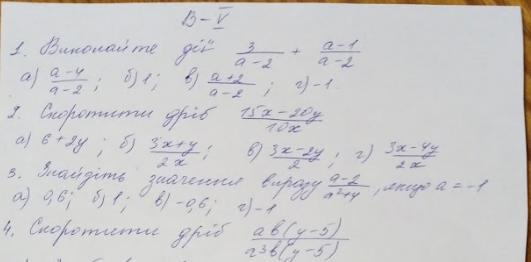 В-V
1. Виконайте дії 3/(a-2) + (a-1)/(a-2)
а) (a-4)/(a-2); б) 1; в) (a+2)/(a-2); г) -1.
2. Скоротити дріб (15x-20y)/(10x)
а) 6+2y; б) (3x+y)/(2x); в) (3x-2y)/2; г) (3x-4y)/(2x)
3. Знайдіть значення виразу (a-2)/(a²+4), якщо a = -1
а) 0,6; б) 1; в) -0,6; г) -1
4. Скоротити дріб (ав(y-5))/(г3в(y-5))